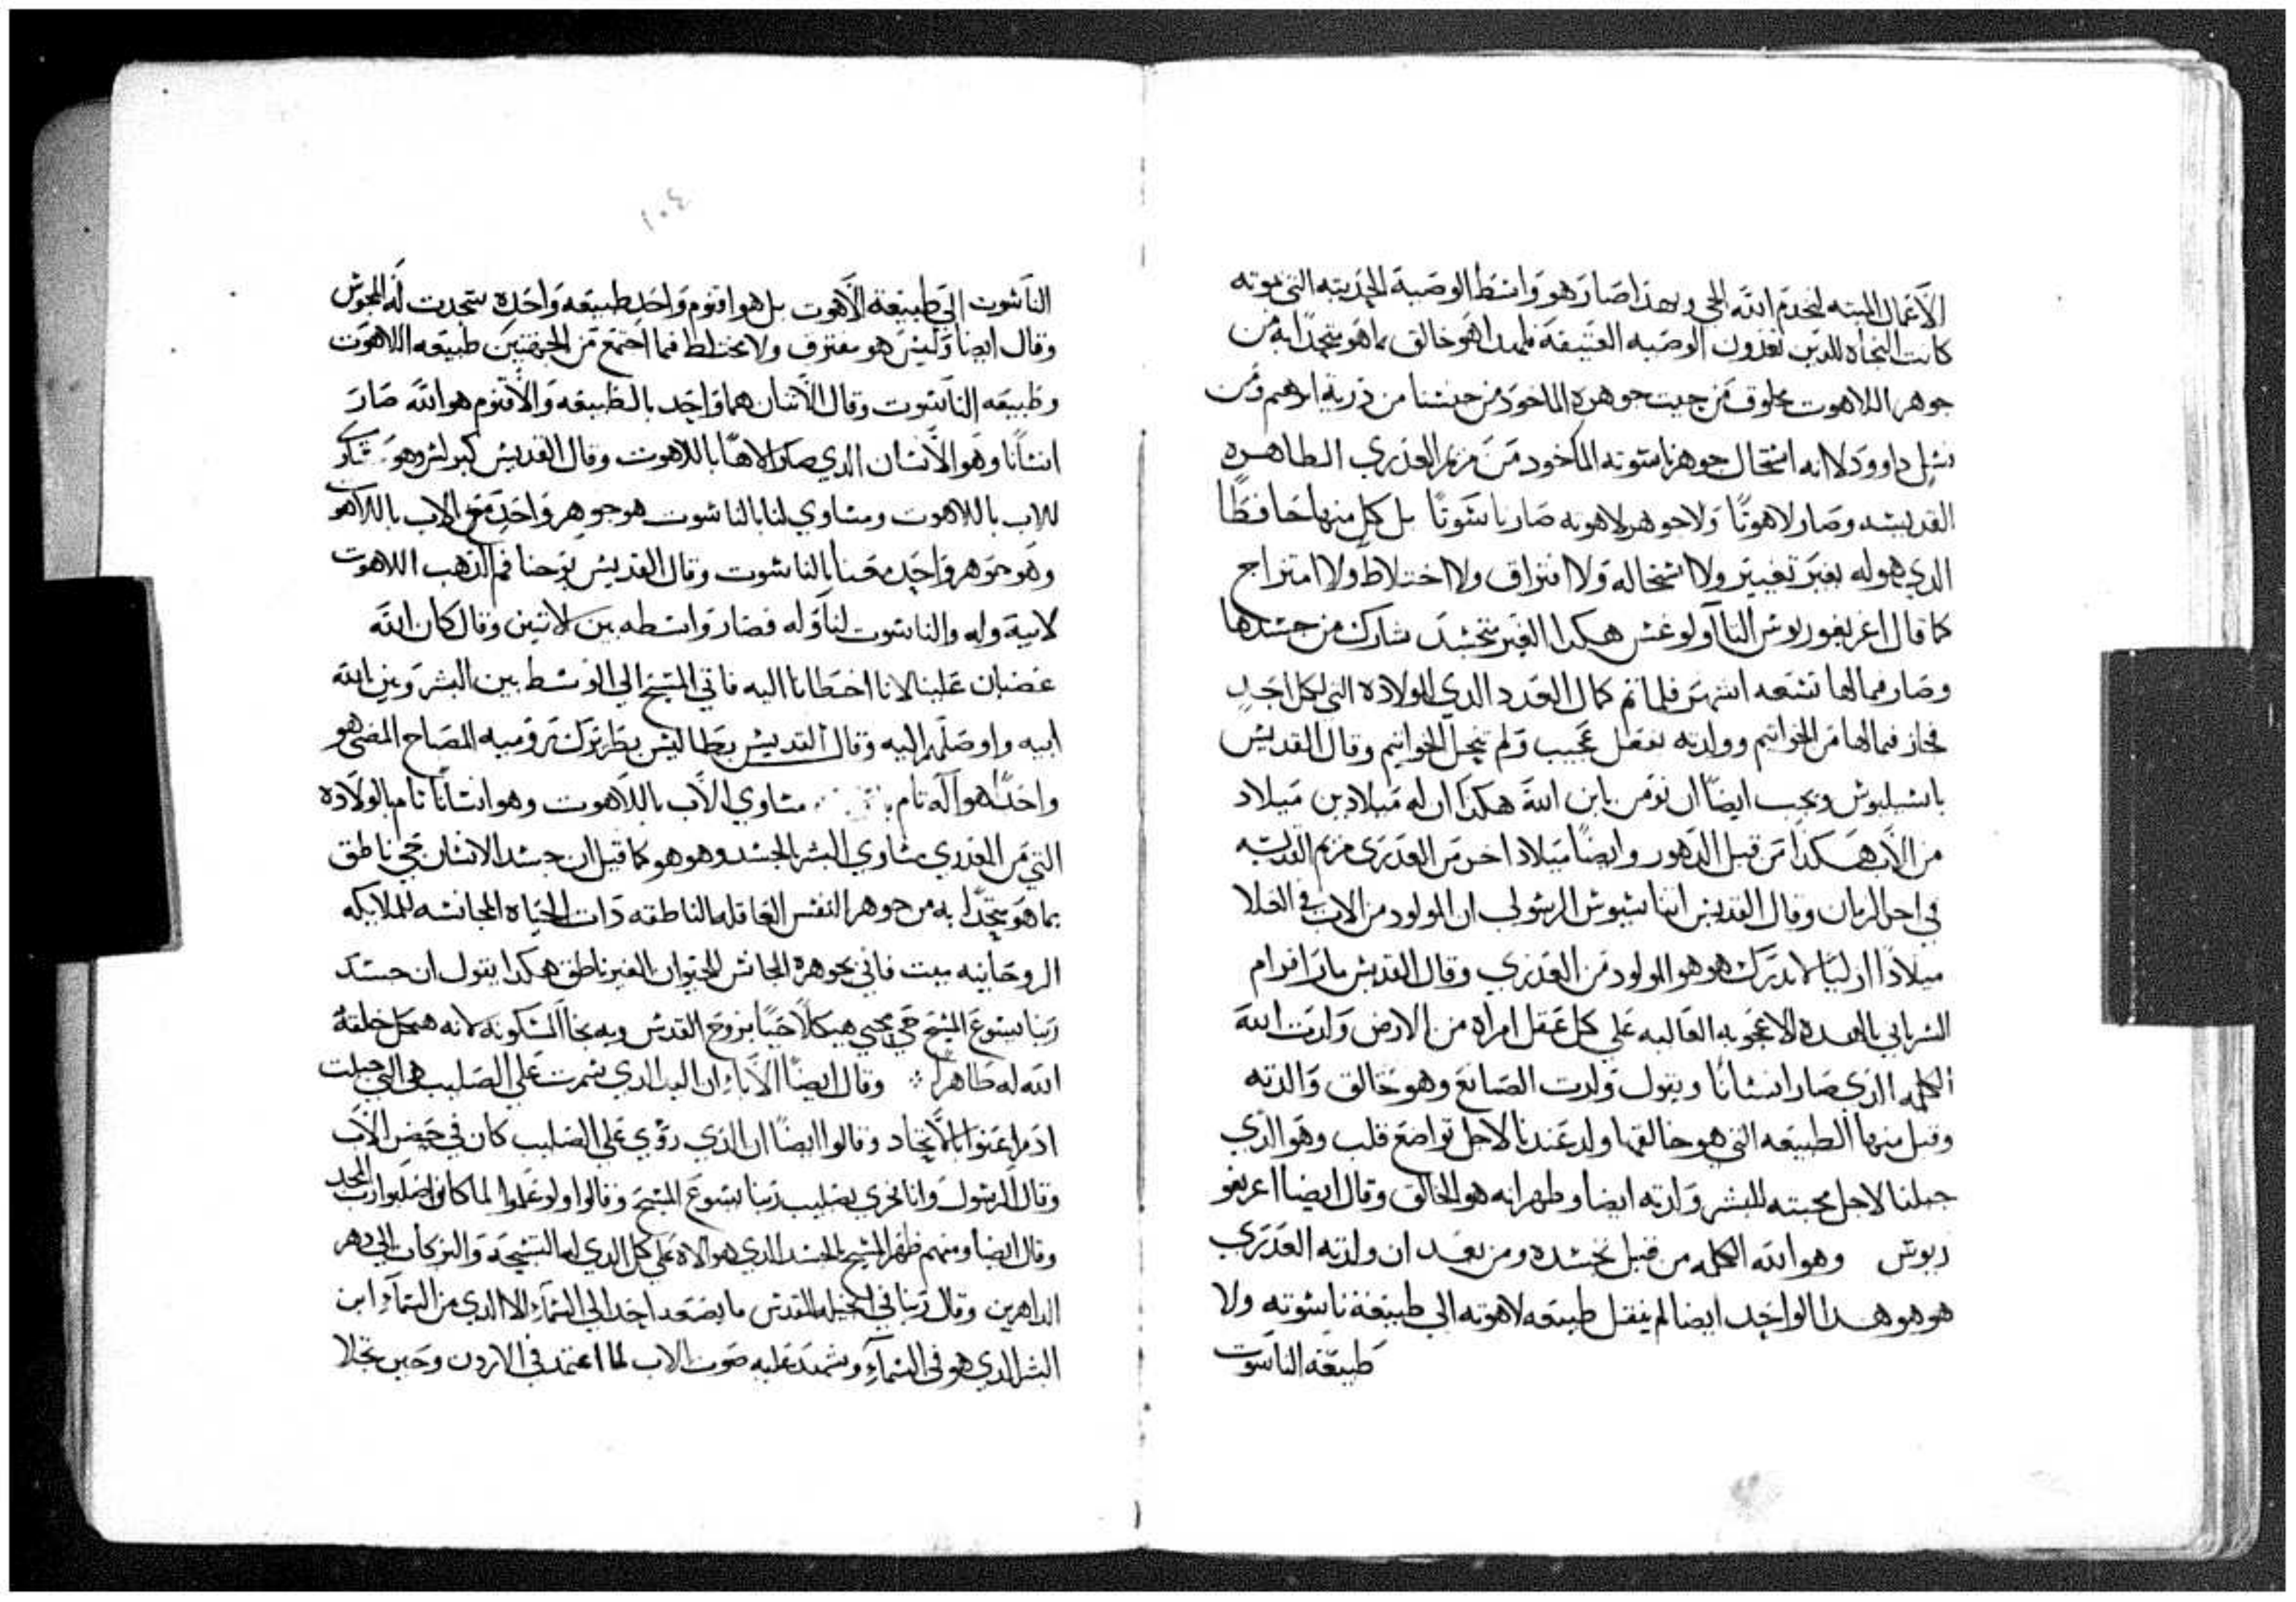 الاعمال الميته لنخدم الله الحي وبهذا صار هو واسط الوصية الجديته التي بموته
كانت النجاه للدين تعدون الوصيه العتيقه فلهدا هو خالق بما هو متحدا به من
جوهر اللاهوت مخلوق من جيت جوهره الماخود من جنسنا من ذرية ابرهيم ومن
نسل داوود لا انه استحال جوهر ناسوته الماخود من مريم العذري الطاهره
القديسه وصار لاهوتًا ولا جوهر لاهوته صار ناسوتًا بل كل منهما حافظًا
الدي هو له بغير تغيير ولا استحاله ولا افتراق ولا اختلاط ولا امتزاج
كما قال اغريغوريوس التااولوغس هكدا الغير متجسد شارك من جسدها
وصار فيما لها تسعه اشهر فلما تم كمال العدد الدي للولاده التي لكل احد
فجاز فيما لها من الخواتيم وولدته بفعل عجيب ولم تنحل الخواتيم وقال القديس
باسيليوس ويجب ايضًا ان نومن بابن الله هكدا ان له ميلادين ميلاد
من الاب هكدا من قبل الدهور وايضًا ميلاد اخر من العدري مريم القديسه
في اخر الزمان وقال القديس اتناسيوس الرسولي ان المولود من الاب في العلا
ميلادًا ازليًا لا يدرك هو هو المولود من العدري وقال القديس مار افرام
السرياني بالهده الاعجوبه الغالبه علي كل عقل امراه من الارض ولدت الله
الكلمه الذي صار انسانًا ويقول ولدت الصانع وهو خالق والدته
وقبل منها الطبيعه التي هو خالقها ولد عندنا لاجل تواضع قلب وهو الدي
جبلنا لاجل محبته للبشر ولدته ايضا وطهرانه هو الخالق وقال ايضا اغريغو
ريوس وهو الله الكلمه من قبل تجسده ومن بعد ان ولدته العدري
هو هو هدا الواحد ايضا لم ينقل طبيعه لاهوته الي طبيعة ناسوته ولا
طبيعة الناسوت
١٠٤
الناسوت الي طبيعة الاهوت بل هو اقنوم واحد طبيعه واحده سجدت له المجوس
وقال ايضا وليس هو مفترق ولا مختلط فيما اجتمع من الجهتين طبيعه اللاهوت
وطبيعه الناسوت وقال الاتنان هما واحد بالطبيعه والاقنوم هو الله صار
انسانا وهو الانسان الدي صار الاهًا باللاهوت وقال القديس كيرلس وهو
للاب باللاهوت ومساوي لنا بالناسوت هو جوهر واحد مع الاب باللاهو
وهو جوهر واحد معنا بالناسوت وقال القديس يوحنا فم الدهب اللاهوت
لابيه وله والناسوت لنا وله فصار واسطه بين الاتنين وقال كان الله
غضبان علينا لانا اخطانا اليه فاتي المسيح الي الوسط بين البشر وبين الله
ابيه واوصلهم اليه وقال القديس بطاليس بطريرك روميه المصباح المضي هو
واحدًا هو اله تام مساوي الاب باللاهوت وهو انسانًا تام بالولاده
التي من العدري مساوي البشر بالجسد وهو هو كما قيل ان جسد الانسان حي ناطق
بما هو متحدًا به من جوهر النفس العاقله الناطقه دات الحياه المجانسه للملايكه
الروحانيه ميت فاني بجوهره المجانس للحيوان الغير ناطق هكدا يقول ان جسد
ربنا يسوع المسيح حي محيي هيكلًا حيًا بروح القدس وبه نجا المسكونه لانه هيكل خلقه
الله له طاهرا وقال ايضا الاباء ان اليد الدي سمرت علي الصليب هي التي جبلت
ادم اعنوا بالاتحاد وقالوا ايضًا ان الذي رؤي علي الصليب كان في حضن الاب
وقال الرسول وانا فخري بصليب ربنا يسوع المسيح وقالوا ولو علموا لما كانوا صلبوا رب المجد
وقال ايضا ومنهم ظهر المسيح بالجسد الدي هو الاه علي كل الدي له التسبيحه والبركات الي دهر
الداهرين وقال ربنا في انجيله المقدس ما يصعد احد الي السماء الا الدي من السماء ابن
البشر الدي هو في السماء وشهد عليه صوت الاب لما اعتمد في الاردن وحين تجلا